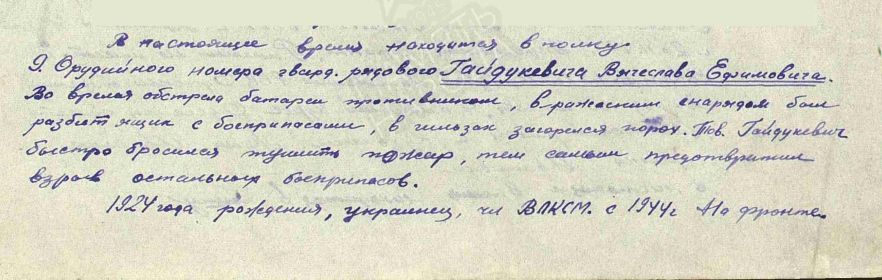 В настоящее время находится в полку.
9. Орудийного номера гвард. рядового Гайдукевича Вячеслава Ефимовича.
Во время обстрела батареи противником, вражеским снарядом был
разбит ящик с боеприпасами, в гильзах загорелся порох. Тов. Гайдукевич
быстро бросился тушить пожар, тем самым предотвратил
взрыв остальных боеприпасов.
1924 года рождения, украинец, чл ВЛКСМ. с 1944г На фронте